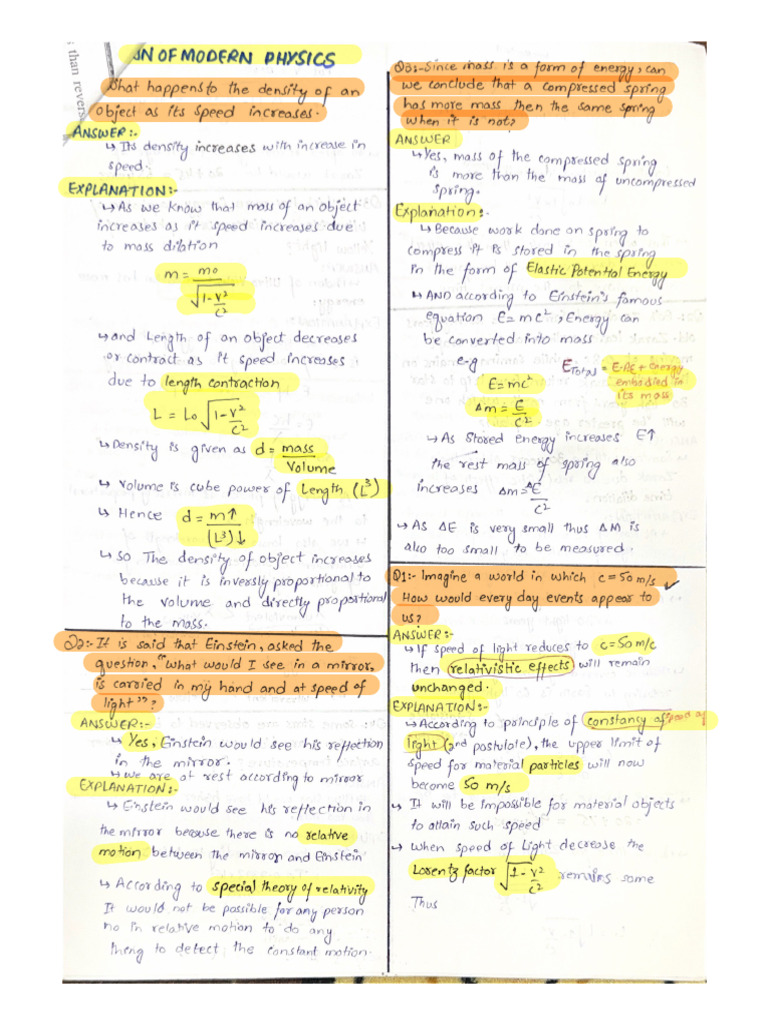 than revers
ON OF MODERN PHYSICS
What happens to the density of an
object as its speed increases.
ANSWER:-
↳ Its density increases with increase in
speed.
EXPLANATION:-
↳ As we know that mass of an object
increases as it speed increases due
to mass dilation
m = mo / √1-v²/c²
↳ and Length of an object decreases
or contract as it speed increases
due to length contraction
L = Lo √1-v²/c²
↳ Density is given as d = mass / Volume
↳ Volume is cube power of Length (L³)
↳ Hence d = m↑ / (L³)↓
↳ So The density of object increases
because it is inversly proportional to
the volume and directly proportional
to the mass.
Q2:- It is said that Einstein, asked the
question, "what would I see in a mirror,
is carried in my hand and at speed of
light"?
ANSWER:-
↳ Yes, Einstein would see his reflection
in the mirror.
↳ we are at rest according to mirror
EXPLANATION:-
↳ Einstein would see his reflection in
the mirror because there is no relative
motion between the mirror and Einstein
↳ According to special theory of relativity
It would not be possible for any person
no in relative motion to do any
thing to detect the constant motion.
Q3:- Since mass is a form of energy, can
we conclude that a compressed spring
has more mass then the same spring
when it is not?
ANSWER
↳ Yes, mass of the compressed spring
is more than the mass of uncompressed
spring.
Explanation:-
↳ Because work done on spring to
compress it is stored in the spring
in the form of Elastic Potential Energy
↳ AND according to Einstein's famous
equation E=mc², Energy can
be converted into mass
e.g
E=mc²
Δm = E/c²
ETotal = E.PE + Energy
embodied in
its mass
↳ As Stored energy increases E↑
the rest mass of spring also
increases Δm = ΔE/c²
↳ As ΔE is very small thus ΔM is
also too small to be measured.
Q1:- Imagine a world in which c=50m/s ✓
How would every day events appear to
us?
ANSWER:-
↳ If speed of light reduces to c=50m/c
then relativistic effects will remain
unchanged.
EXPLANATION:-
↳ According to principle of constancy of speed of
light (2nd postulate), the upper limit of
speed for material particles will now
become 50 m/s
↳ It will be impossible for material objects
to attain such speed
↳ When speed of Light decrease the
Lorentz factor √1-v²/c² remains same
Thus